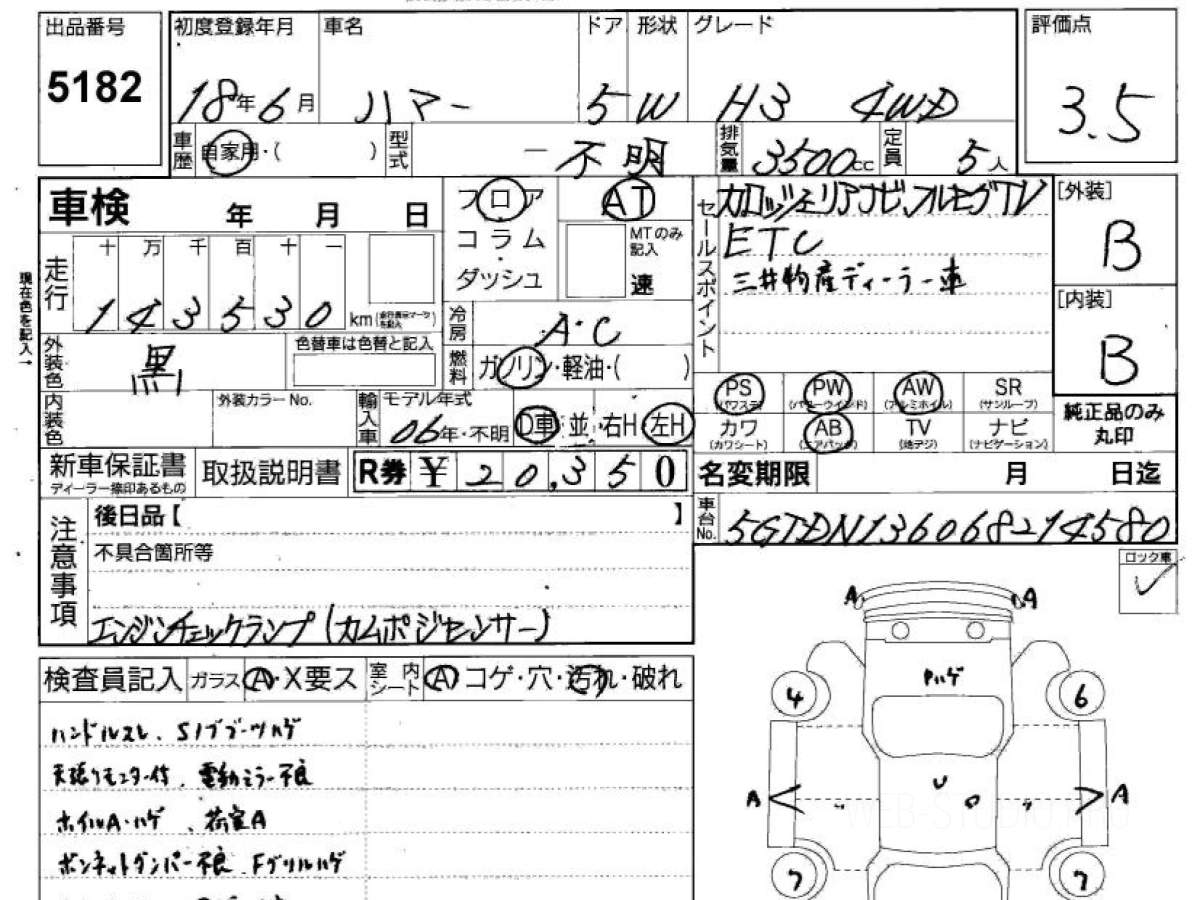 出品番号 初度登録年月 車名 ドア 形状 グレード 評価点
5182 18年6月 ハマー 5 W H3 4WD 3.5
車歴 自家用・( ) 型式 - 不明 排気量 3500cc 定員 5人
車検 年 月 日 フロア AT セールスポイント カロッツェリアナビ、フルセグTV [外装]
コラム MTのみ記入 ETC B
走行 十 万 千 百 十 一 ダッシュ 速 三井物産ディーラー車
現在色を記入→ 143530 km (走行表示マークを記入) 冷房 A・C [内装]
外装色 黒 色替車は色替と記入 燃料 ガソリン・軽油・( ) B
PS (パワステ) PW (パワーウインド) AW (アルミホイル) SR (サンルーフ)
内装色 外装カラーNo. 輸入車 モデル年式 06年・不明 D車・並 右H・左H カワ (カワシート) AB (エアバッグ) TV (地デジ) ナビ (ナビゲーション) 純正品のみ丸印
新車保証書 ディーラー捺印あるもの 取扱説明書 R券 ¥20,350 名変期限 月 日迄
注意事項 後日品【 】 車台No. 5GTDN136068214580
不具合箇所等 ロック車
エンジンチェックランプ (カムポジセンサー)
A A
検査員記入 ガラス A・X要ス 室内シート A コゲ・穴・汚れ・破れ
4 6
ハンドルスレ、S/ブブーツハゲ
天張りモニター付、電動ミラー不良
A U A
ホイルA・ハゲ、荷室A
WEB-STUDIO.PRO
ボンネットダンパー不良、Fグリルハゲ
7 7